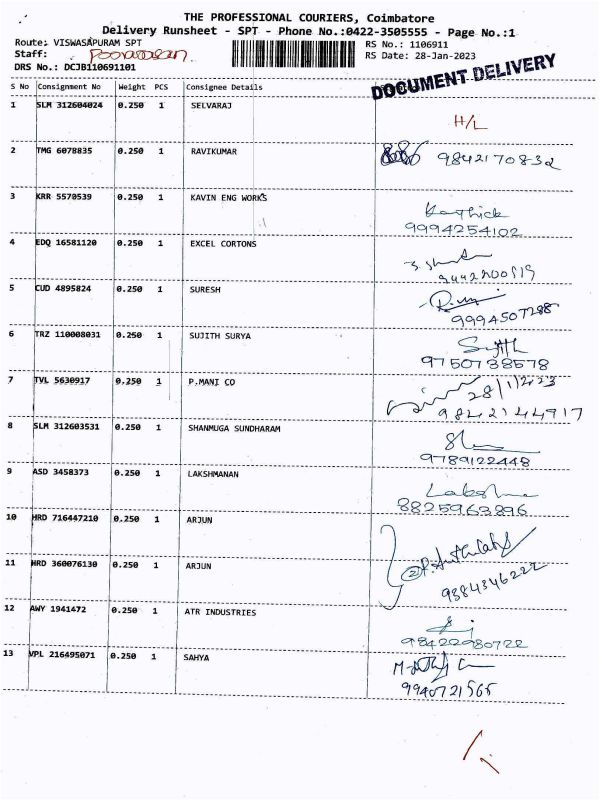 THE PROFESSIONAL COURIERS, Coimbatore
Delivery Runsheet - SPT - Phone No.:0422-3505555 - Page No.:1
Route: VISWASAPURAM SPT RS No.: 1106911
Staff: RS Date: 28-Jan-2023
DRS No.: DCJB110691101
DOCUMENT DELIVERY
S No Consignment No Weight PCS Consignee Details
1 SLM 312604024 0.250 1 SELVARAJ
H/L
2 TMG 6078835 0.250 1 RAVIKUMAR
9842170832
3 KRR 5570539 0.250 1 KAVIN ENG WORKS
Karthick
9994254102
4 EDQ 16581120 0.250 1 EXCEL CORTONS
5 CUD 4895824 0.250 1 SURESH
9994507288
6 TRZ 110008031 0.250 1 SUJITH SURYA
Sujith
9750738578
7 TVL 5630917 0.250 1 P.MANI CO
28/1/2023
9842144917
8 SLM 312603531 0.250 1 SHANMUGA SUNDHARAM
9789122448
9 ASD 3458373 0.250 1 LAKSHMANAN
8825963896
10 HRD 716447210 0.250 1 ARJUN
11 HRD 360076130 0.250 1 ARJUN
2
9384346222
12 AWY 1941472 0.250 1 ATR INDUSTRIES
9842290722
13 VPL 216495071 0.250 1 SAHYA
9940721565